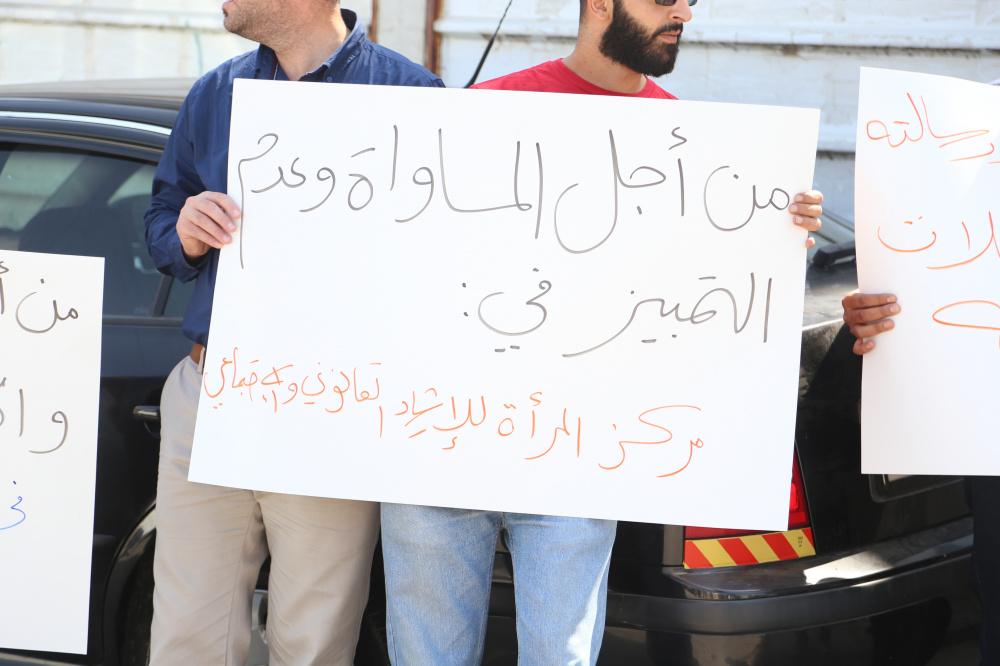 من أجل المساواة وعدم
التمييز في:
مركز المرأة للإرشاد القانوني والاجتماعي
من
في
رسالته